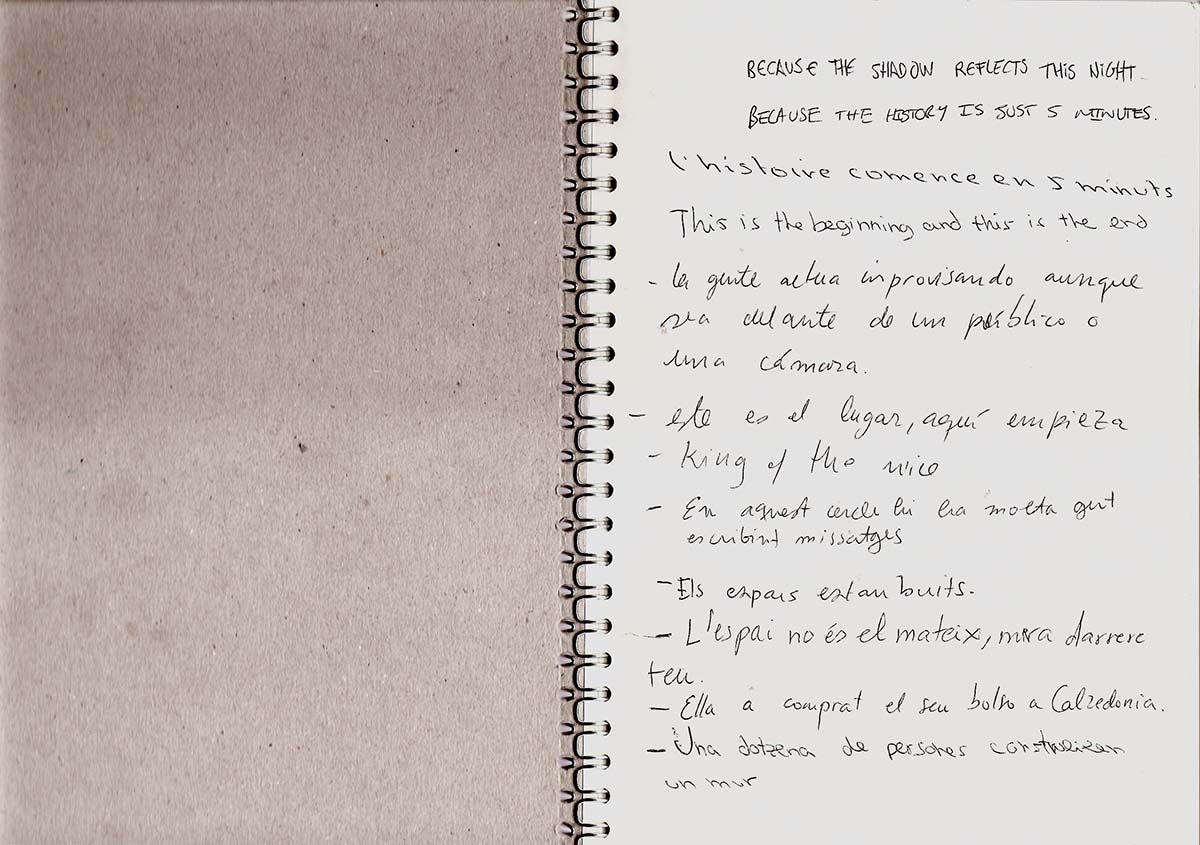 BECAUSE THE SHADOW REFLECTS THIS NIGHT
BECAUSE THE HISTORY IS JUST 5 MINUTES.
l'histoire comence en 5 minuts
This is the beginning and this is the end
- la gente actua improvisando aunque
sea delante de un público o
una cámara.
- este es el lugar, aquí empieza
- King of the mice
- En aquest cercle hi ha molta gent
escribint missatges
- Els espais estan buits.
- L'espai no és el mateix, mira darrere
teu.
- Ella a comprat el seu bolso a Calzedonia.
- Una dotzena de persones construeixen
un mur